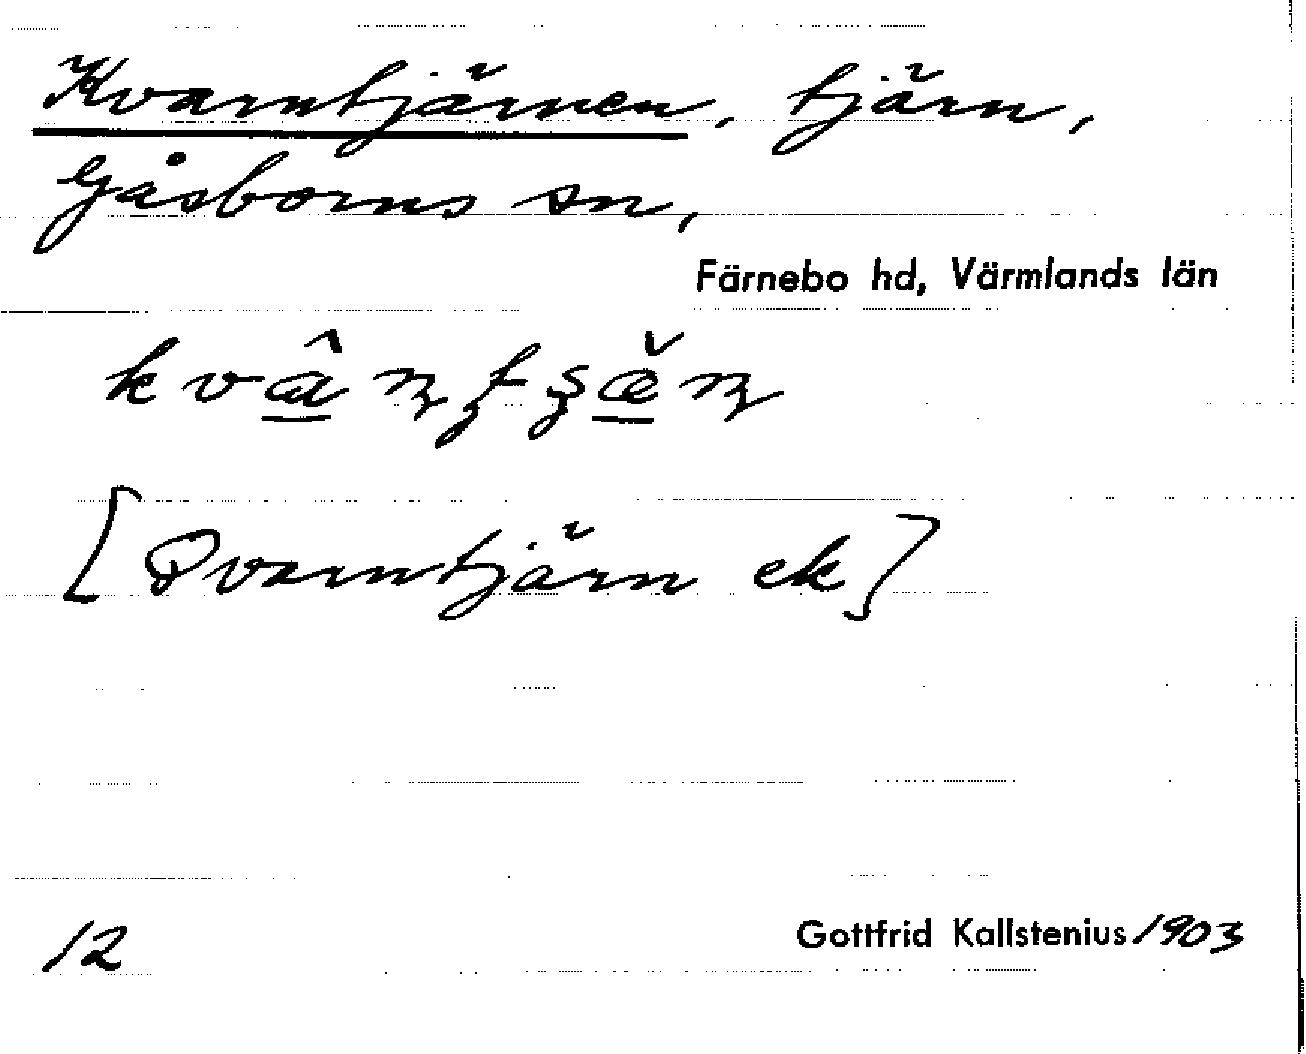 Kvarntjärnen, tjärn,
Gåsborns sn,
Färnebo hd, Värmlands län
[Qvarntjärn ek]
12
Gottfrid Kallstenius 1903